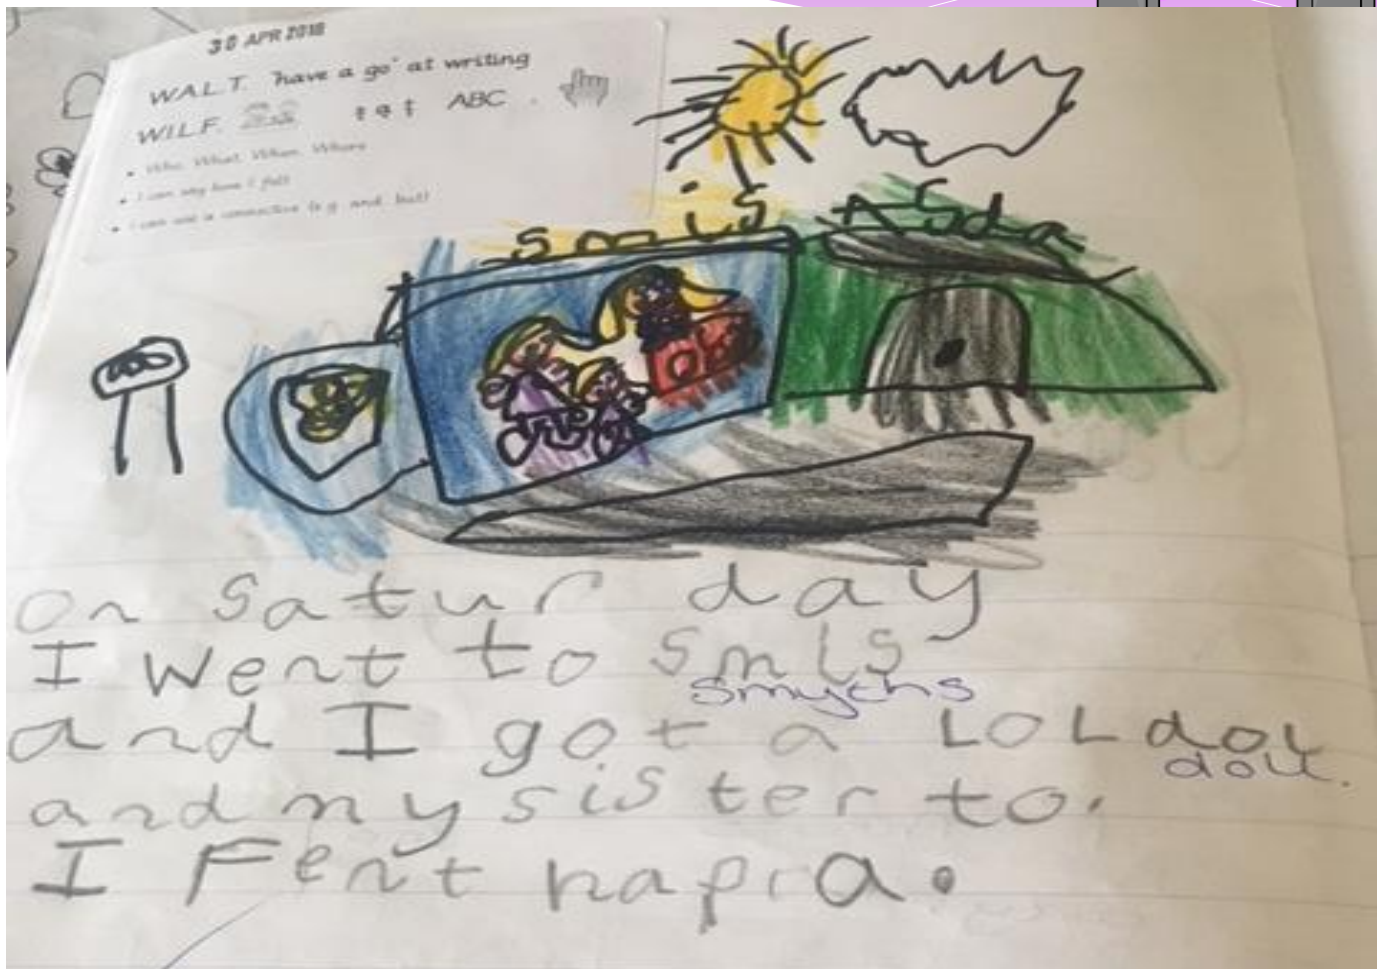 30 APR 2018
W.A.L.T. "have a go" at writing
W.I.L.F. ABC
• Who, What, When, Where
• I can say how I felt
• I can use a connective (e.g. and, but)
smis ASda
on satur day
I went to smis
smyths
and I got a LOL dol
doll.
and my sister to.
I Fent hapia.